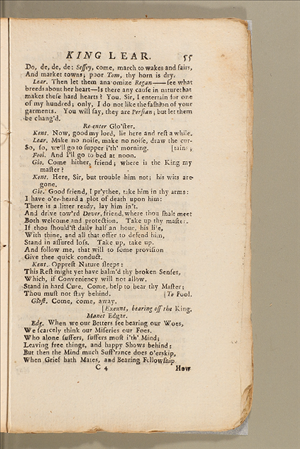 KING LEAR. 55
Do, de, de, de: Sessey, come, march to wakes and fairs,
And market towns; poor Tom, thy horn is dry.
Lear. Then let them anatomize Regan——see what
breeds about her heart—Is there any cause in nature that
makes these hard hearts? You, Sir, I entertain for one
of my hundred; only, I do not like the fashion of your
garments. You will say, they are Persian; but let them
be chang'd.
Re-enter Glo'ster.
Kent. Now, good my lord, lie here and rest a while.
Lear. Make no noise, make no noise, draw the cur-
So, so, we'll go to supper i'th' morning. [tains;
Fool. And I'll go to bed at noon.
Glo. Come hither, friend; where is the King my
master?
Kent. Here, Sir, but trouble him not; his wits are
gone.
Glo. Good friend, I pr'ythee, take him in thy arms:
I have o'er-heard a plot of death upon him:
There is a litter ready, lay him in't,
And drive tow'rd Dover, friend, where thou shalt meet
Both welcome and protection. Take up thy master.
If thou should'st dally half an hour, his life,
With thine, and all that offer to defend him,
Stand in assured loss. Take up, take up.
And follow me, that will to some provision
Give thee quick conduct.
Kent. Opprest Nature sleeps:
This Rest might yet have balm'd thy broken Senses,
Which, if Conveniency will not allow,
Stand in hard Cure. Come, help to bear thy Master;
Thou must not stay behind. [To Fool.
Glost. Come, come, away.
[Exeunt, bearing off the King.
Manet Edgar.
Edg. When we our Betters see bearing our Woes,
We scarcely think our Miseries our Foes.
Who alone suffers, suffers most i'th' Mind;
Leaving free things, and happy Shows behind:
But then the Mind much Suff'rance does o'erskip,
When Grief hath Mates, and Bearing Fellowship.
C 4 How